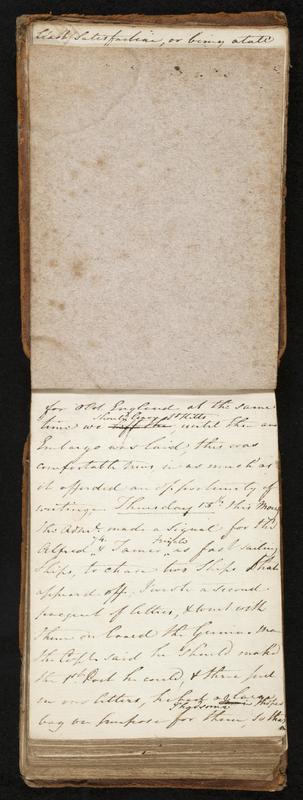 least Satisfaction, or being at all
for old England at the same
time we should leave St Kitts until then an
Embargo was laid, this was
comfortable news in as much as
it afforded an opportunity of
writing. Thursday 13th this Morng
the Adml. made a Signal for the
Alfred 74 & Tamer Frigte as fast sailing
Ships, to chace two Ships that
appeard off; I wrote a second
pacquet of letters, & went with
them on board the
the Captn said he should make
the 1st Port he could & there put
in our letters, he had a large
bag on purpose for them, so that